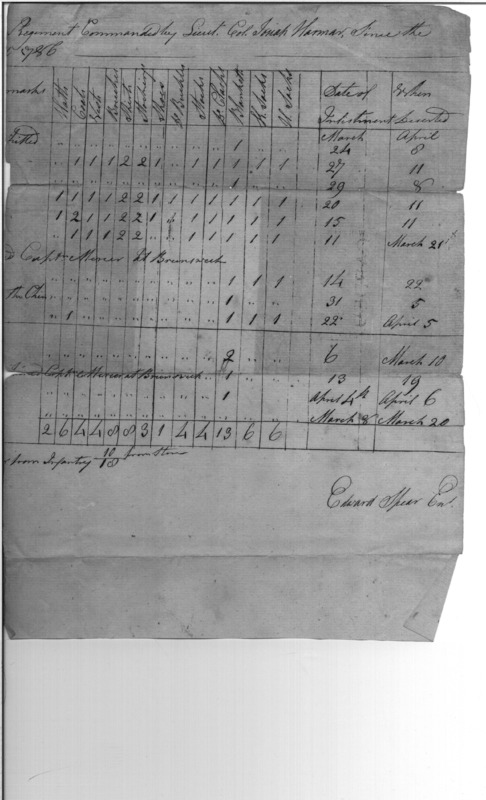 Regiment Commanded by Lieut. Col. Josiah Harmar, Since the
1786
marks Hatts Coats Vests Breeches Shirts Stockings Shoes Buckles Stocks Clasps Blankets Sacks Sacks Date of Inlistment When Deserted
" " " " " " " " " " 1 " " March 24 April 8
" 1 1 1 2 2 1 " 1 1 1 1 1 27 11
" " " " " " " " " " 1 " " 29 8
1 1 1 1 2 2 1 1 1 1 1 1 1 20 11
1 2 1 1 2 2 1 " 1 1 1 1 1 15 11
" 1 1 1 2 2 " " 1 1 1 1 1 11 March 21st
Capt. Mercer at Brunswick
" " " " " " " " " " 1 1 1 14 22
" " " " " " " " " " 1 " " 31 5
" 1 " " " " " " " " 1 1 1 22 April 5
" " " " " " " " " " 2 " " 6 March 10
Joined Capt. Mercer at Brunswick " 1 " " 13 19
" " " " " " " " " " 1 April 4th April 6
March 8 March 20
2 6 4 4 8 8 3 1 4 4 13 6 6
from Infantry 10/18 from
Edward Spear Ens.